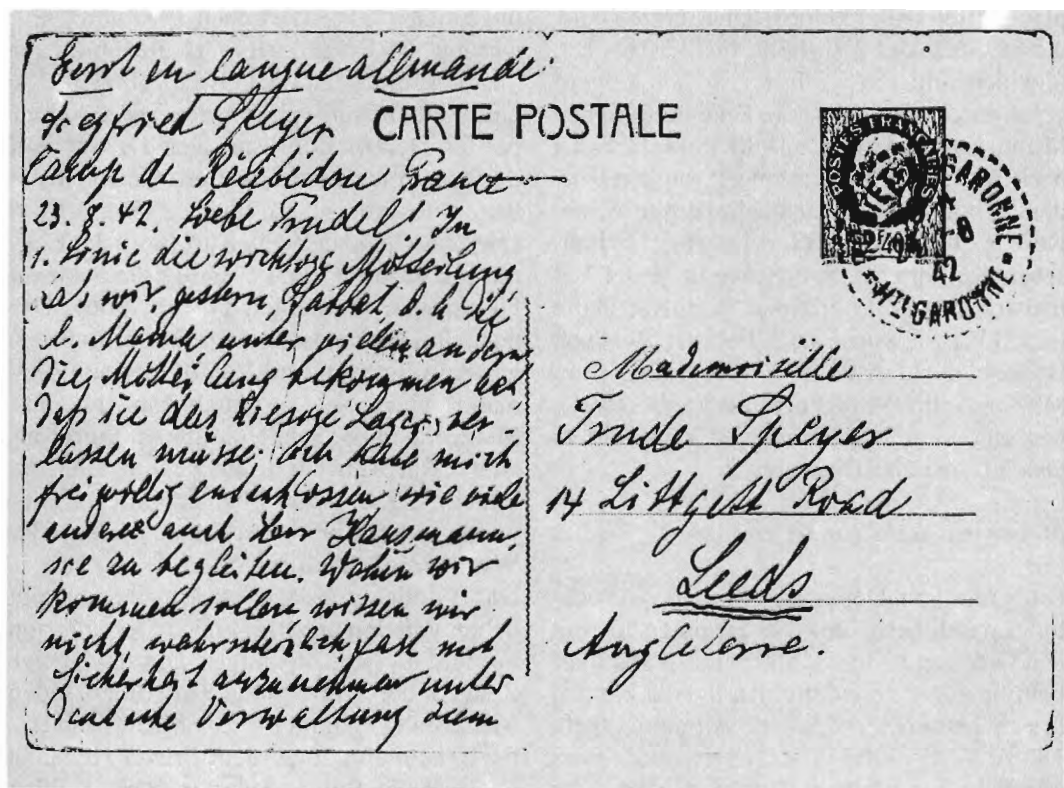 Écrit en langue allemande:
Siegfried Speyer
Camp de Récébédou France
23. 8. 42. Liebe Trudel! In
1. Linie die wichtige Mitteilung,
als wir gestern, Sabbat d. h. die
l. Mama unter vielen andern
die Mitteilung bekommen hat
daß sie das hiesige Lager, ver-
lassen müsse. Ich habe mich
freiwillig entschlossen wie viele
andere auch Herr Hausmann,
sie zu begleiten. Wohin wir
kommen sollen, wissen wir
nicht, wahrscheinlich, fast mit
Sicherheit anzunehmen unter
deutsche Verwaltung
CARTE POSTALE
POSTES FRANÇAISES
GARONNE
42
HTE GARONNE
Mademoiselle
Trude Speyer
14 Littgett Road
Leeds
Angleterre.